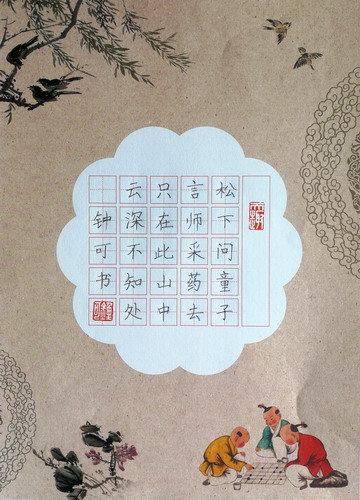 松下问童子
言师采药去
只在此山中
云深不知处
钟可书